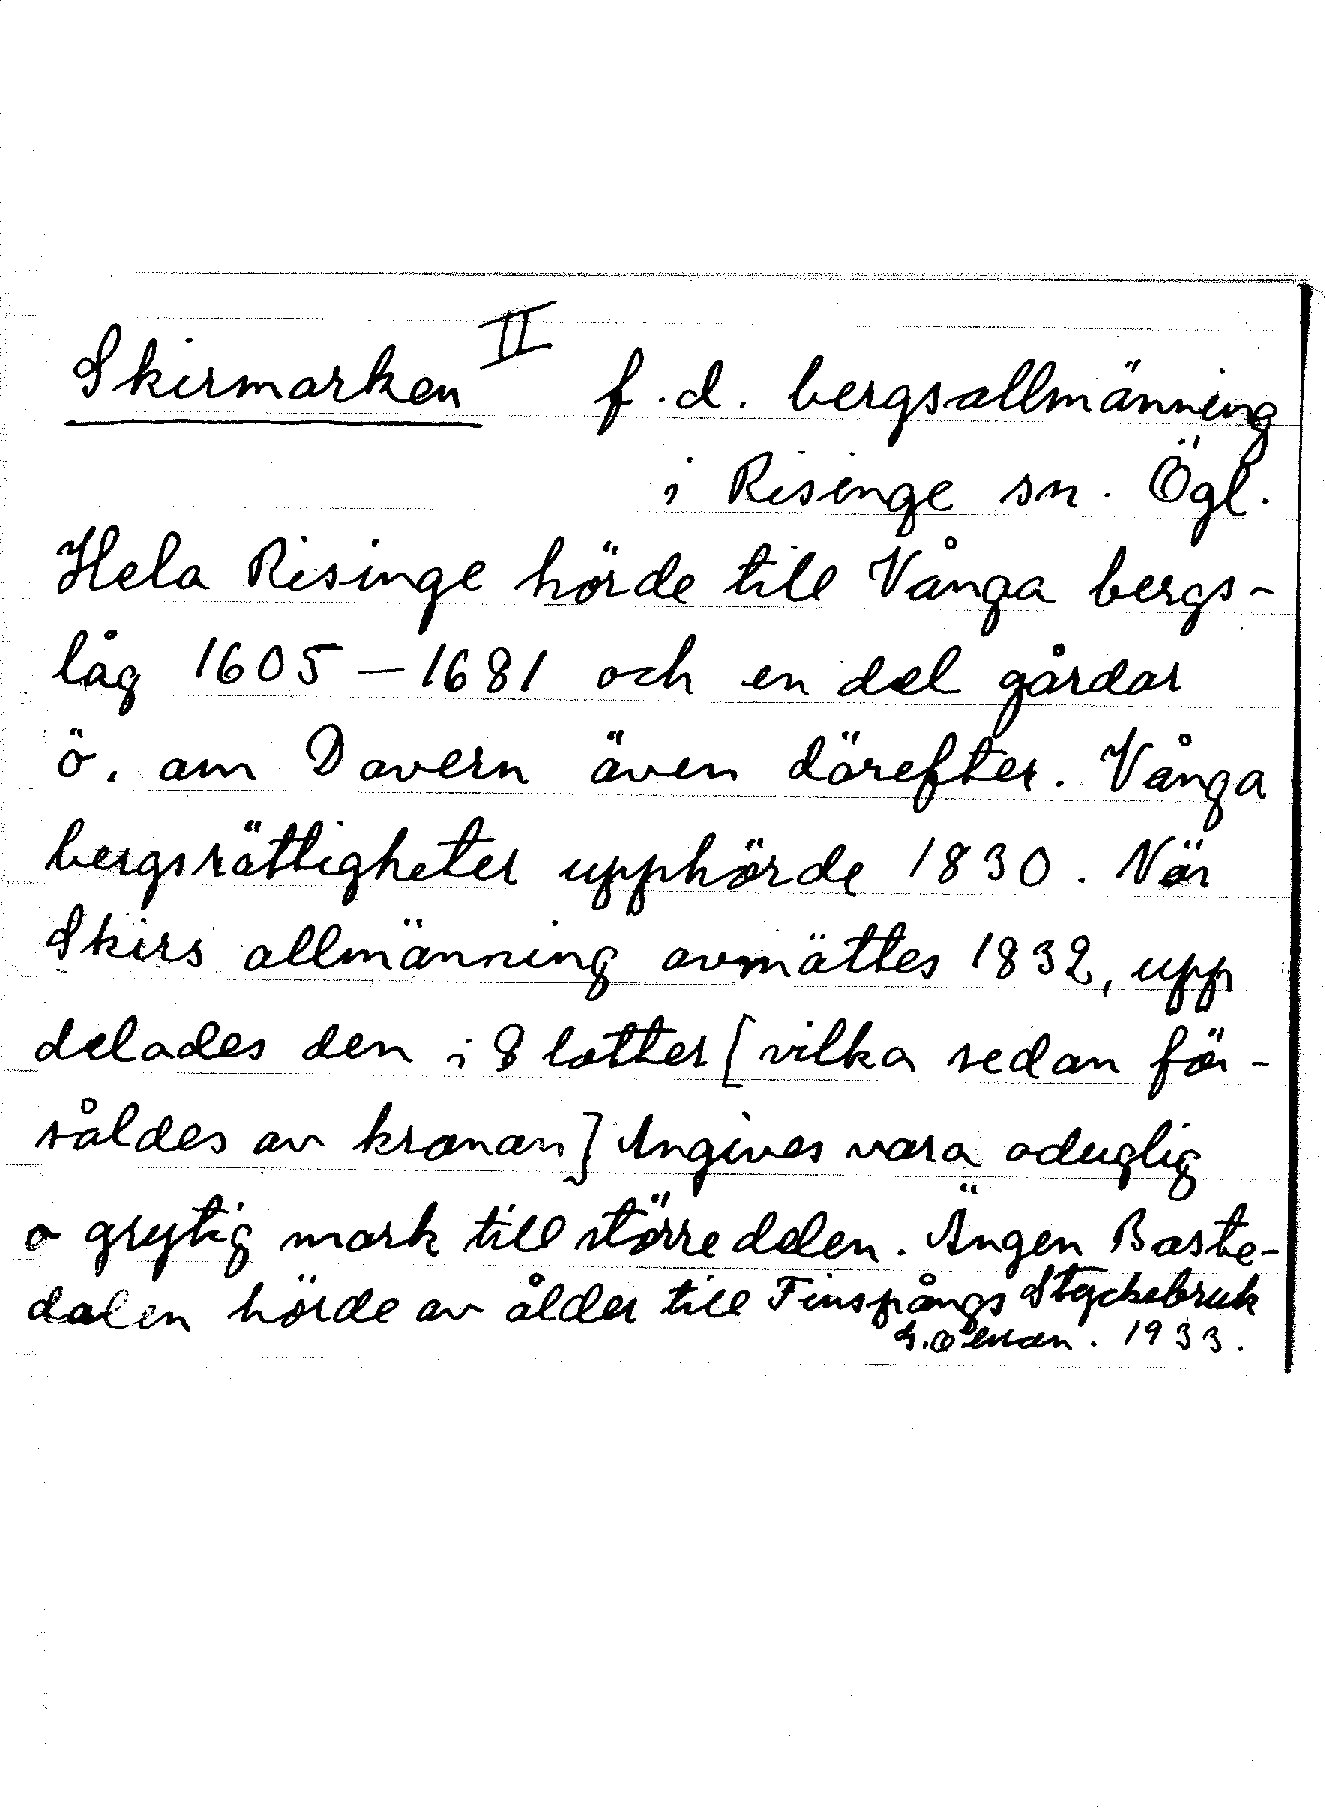 Skirmarken II f.d. bergsallmänning
i Risinge sn. Ögl.
Hela Risinge hörde till Vånga bergs-
låg 1605-1681 och en del gårdar
ö. om Dovern även därefter. Vånga
bergsrättigheter upphörde 1830. När
Skirs allmänning avmättes 1832, upp
delades den i 8 lotter [vilka sedan för-
såldes av kronan] Angives vara oduglig
o grytig mark till större delen. Ängen Baste-
dalen hörde av ålder till Finspångs Styckebruk
1933.